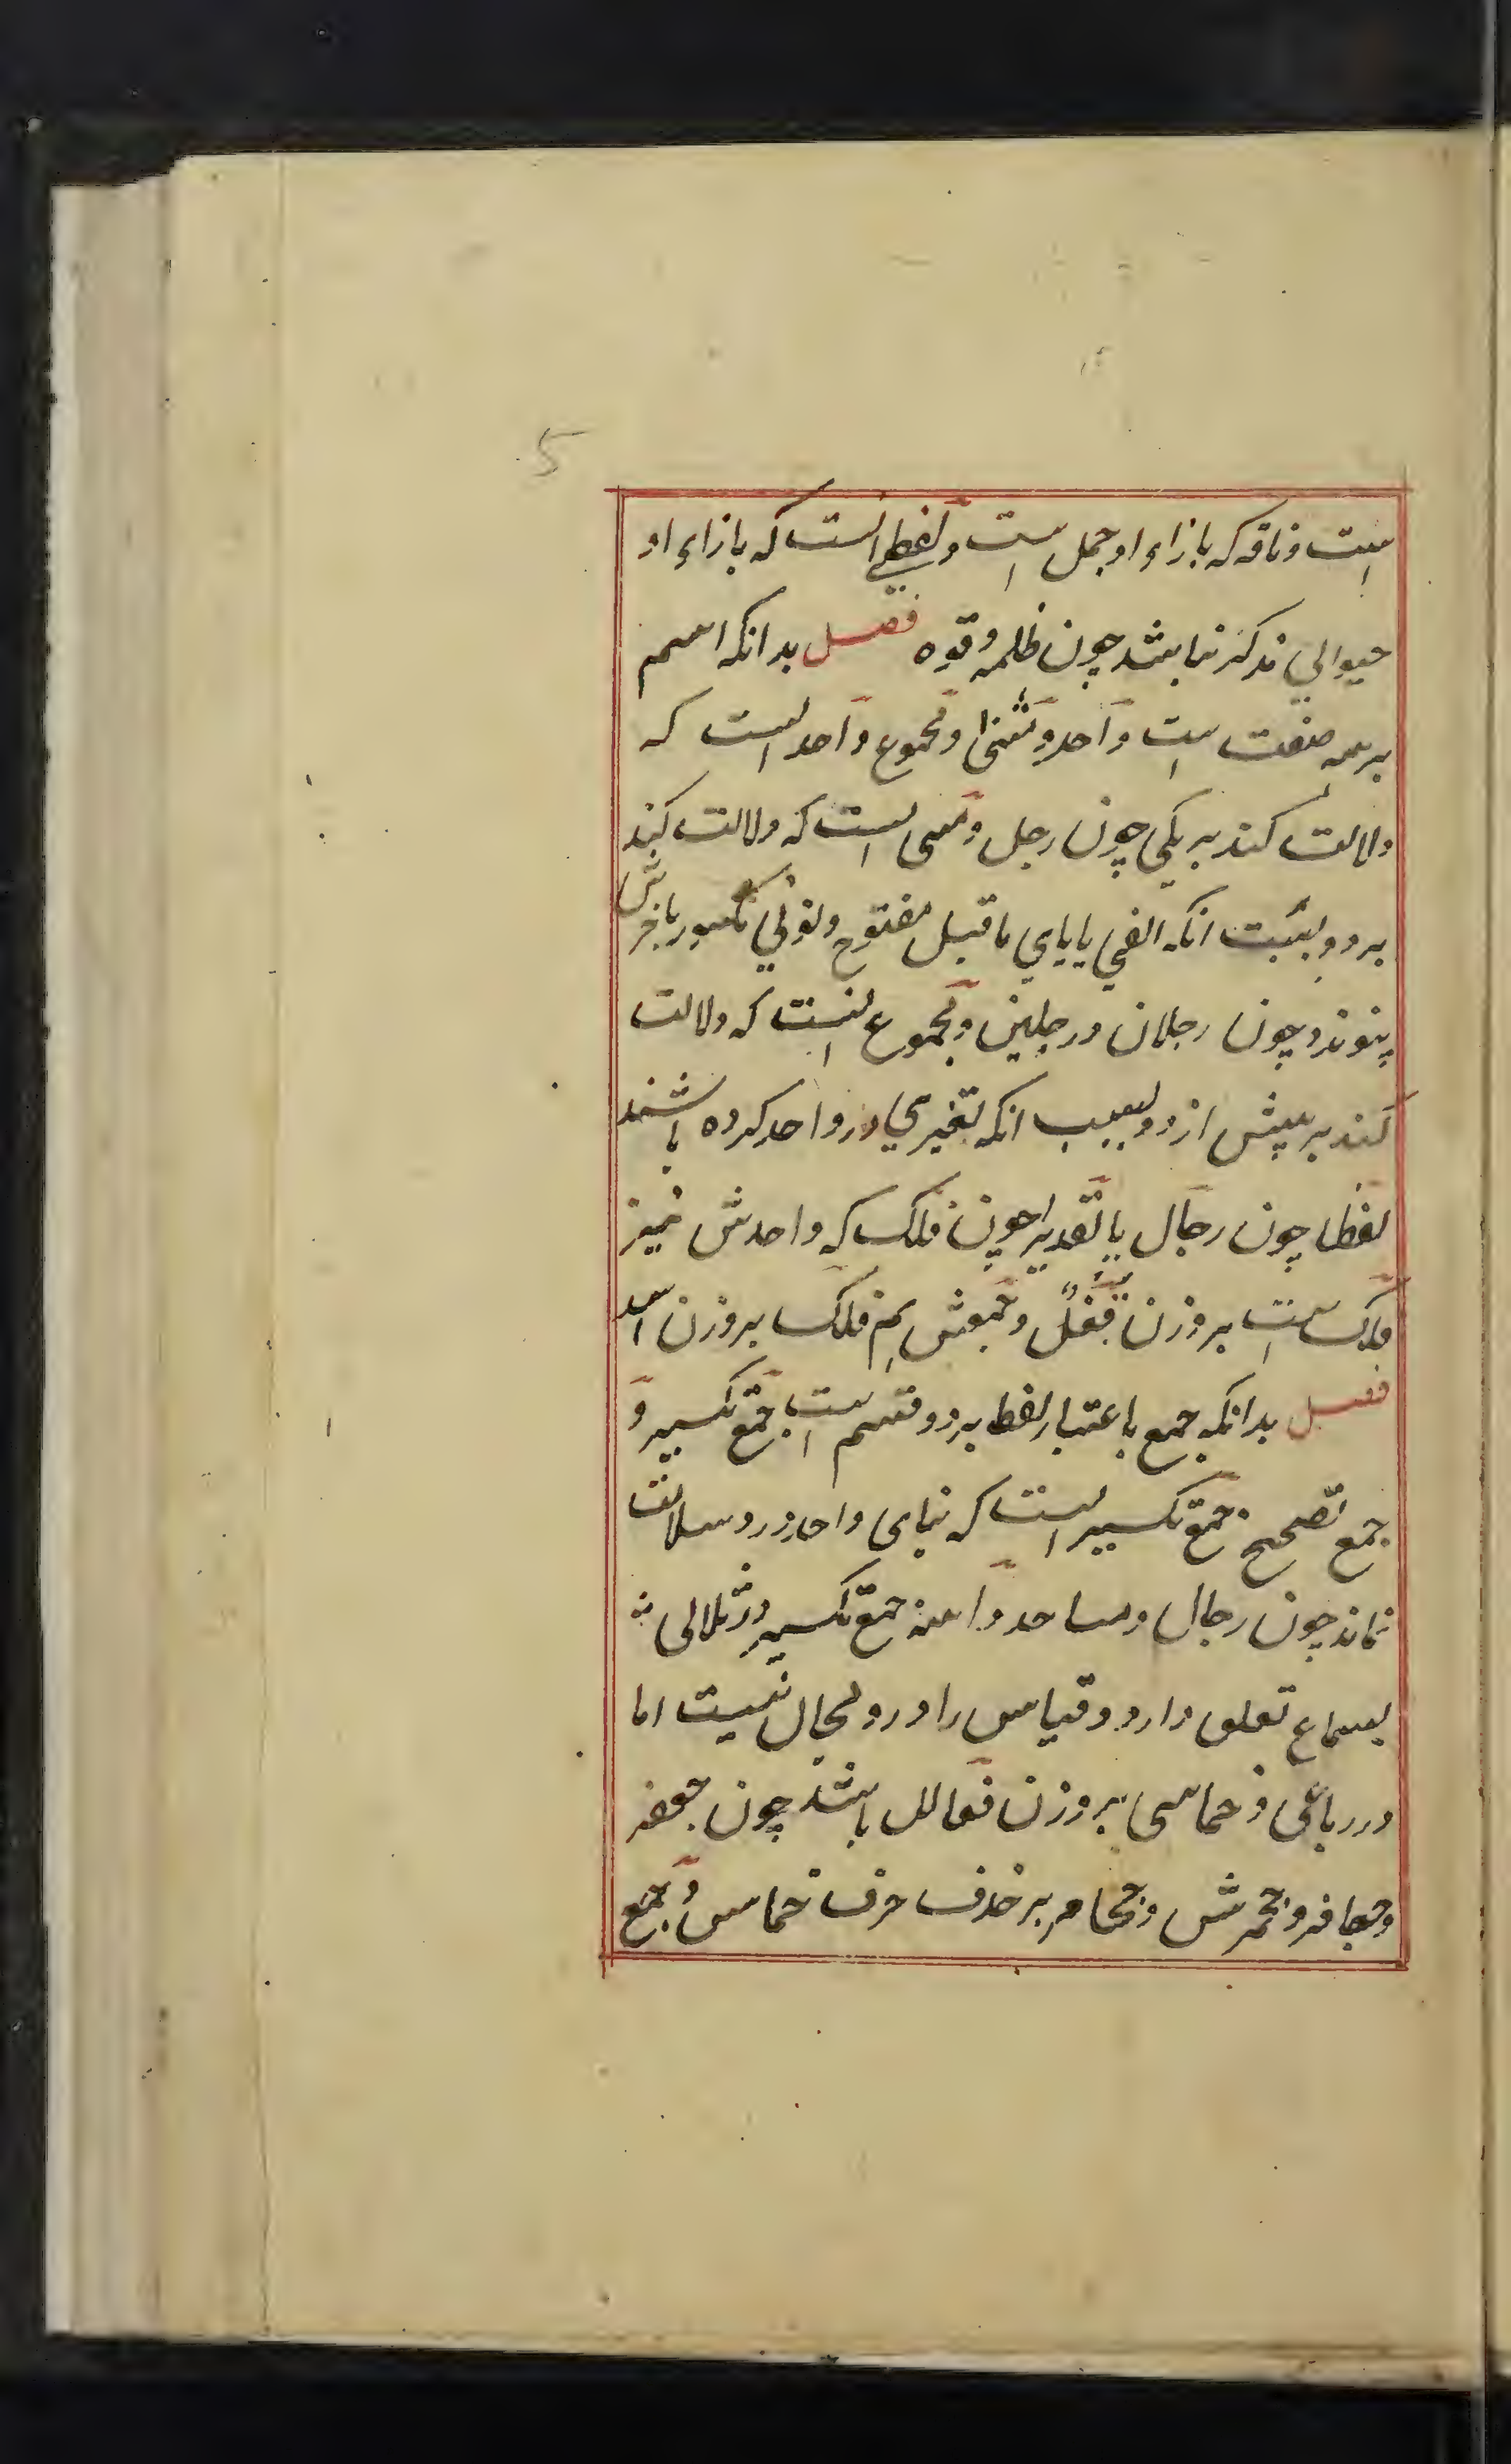 5
است و ناقه که بازاء او جمل است و لفظی انست که بازاء او
حیوانی مذکر نباشد چون ظلمه و قوه فصل بدانکه اسم
بر سه صنف است واحد و مثنی و مجموع واحد انست که
دلالت کند بر یکی چون رجل و مثنی انست که دلالت کند
بر دو بسبب انکه الفی یا یای ماقبل مفتوح و نونی مکسور باخرش
پیوندد چون رجلان و رجلین و مجموع انست که دلالت
کند بر بیش از دو بسبب انکه تغیری در واحد کرده باشند
لفظا چون رجال یا تقدیرا چون فلک که واحدش نیز
فلک است بر وزن قفل و جمعش هم فلک بر وزن اسد
فصل بدانکه جمع باعتبار لفظ بر دو قسم است جمع تکسیر و
جمع تصحیح جمع تکسیر انست که بنای واحد درو سلامت
نماند چون رجال و مساجد و ابنیه جمع تکسیر در ثلاثی
بسماع تعلق دارد و قیاس را درو مجال نیست اما
در رباعی و خماسی بر وزن فعالل باشد چون جعفر
و جعافر و جحمرش و جحامر بر حذف حرف خامس و جمع